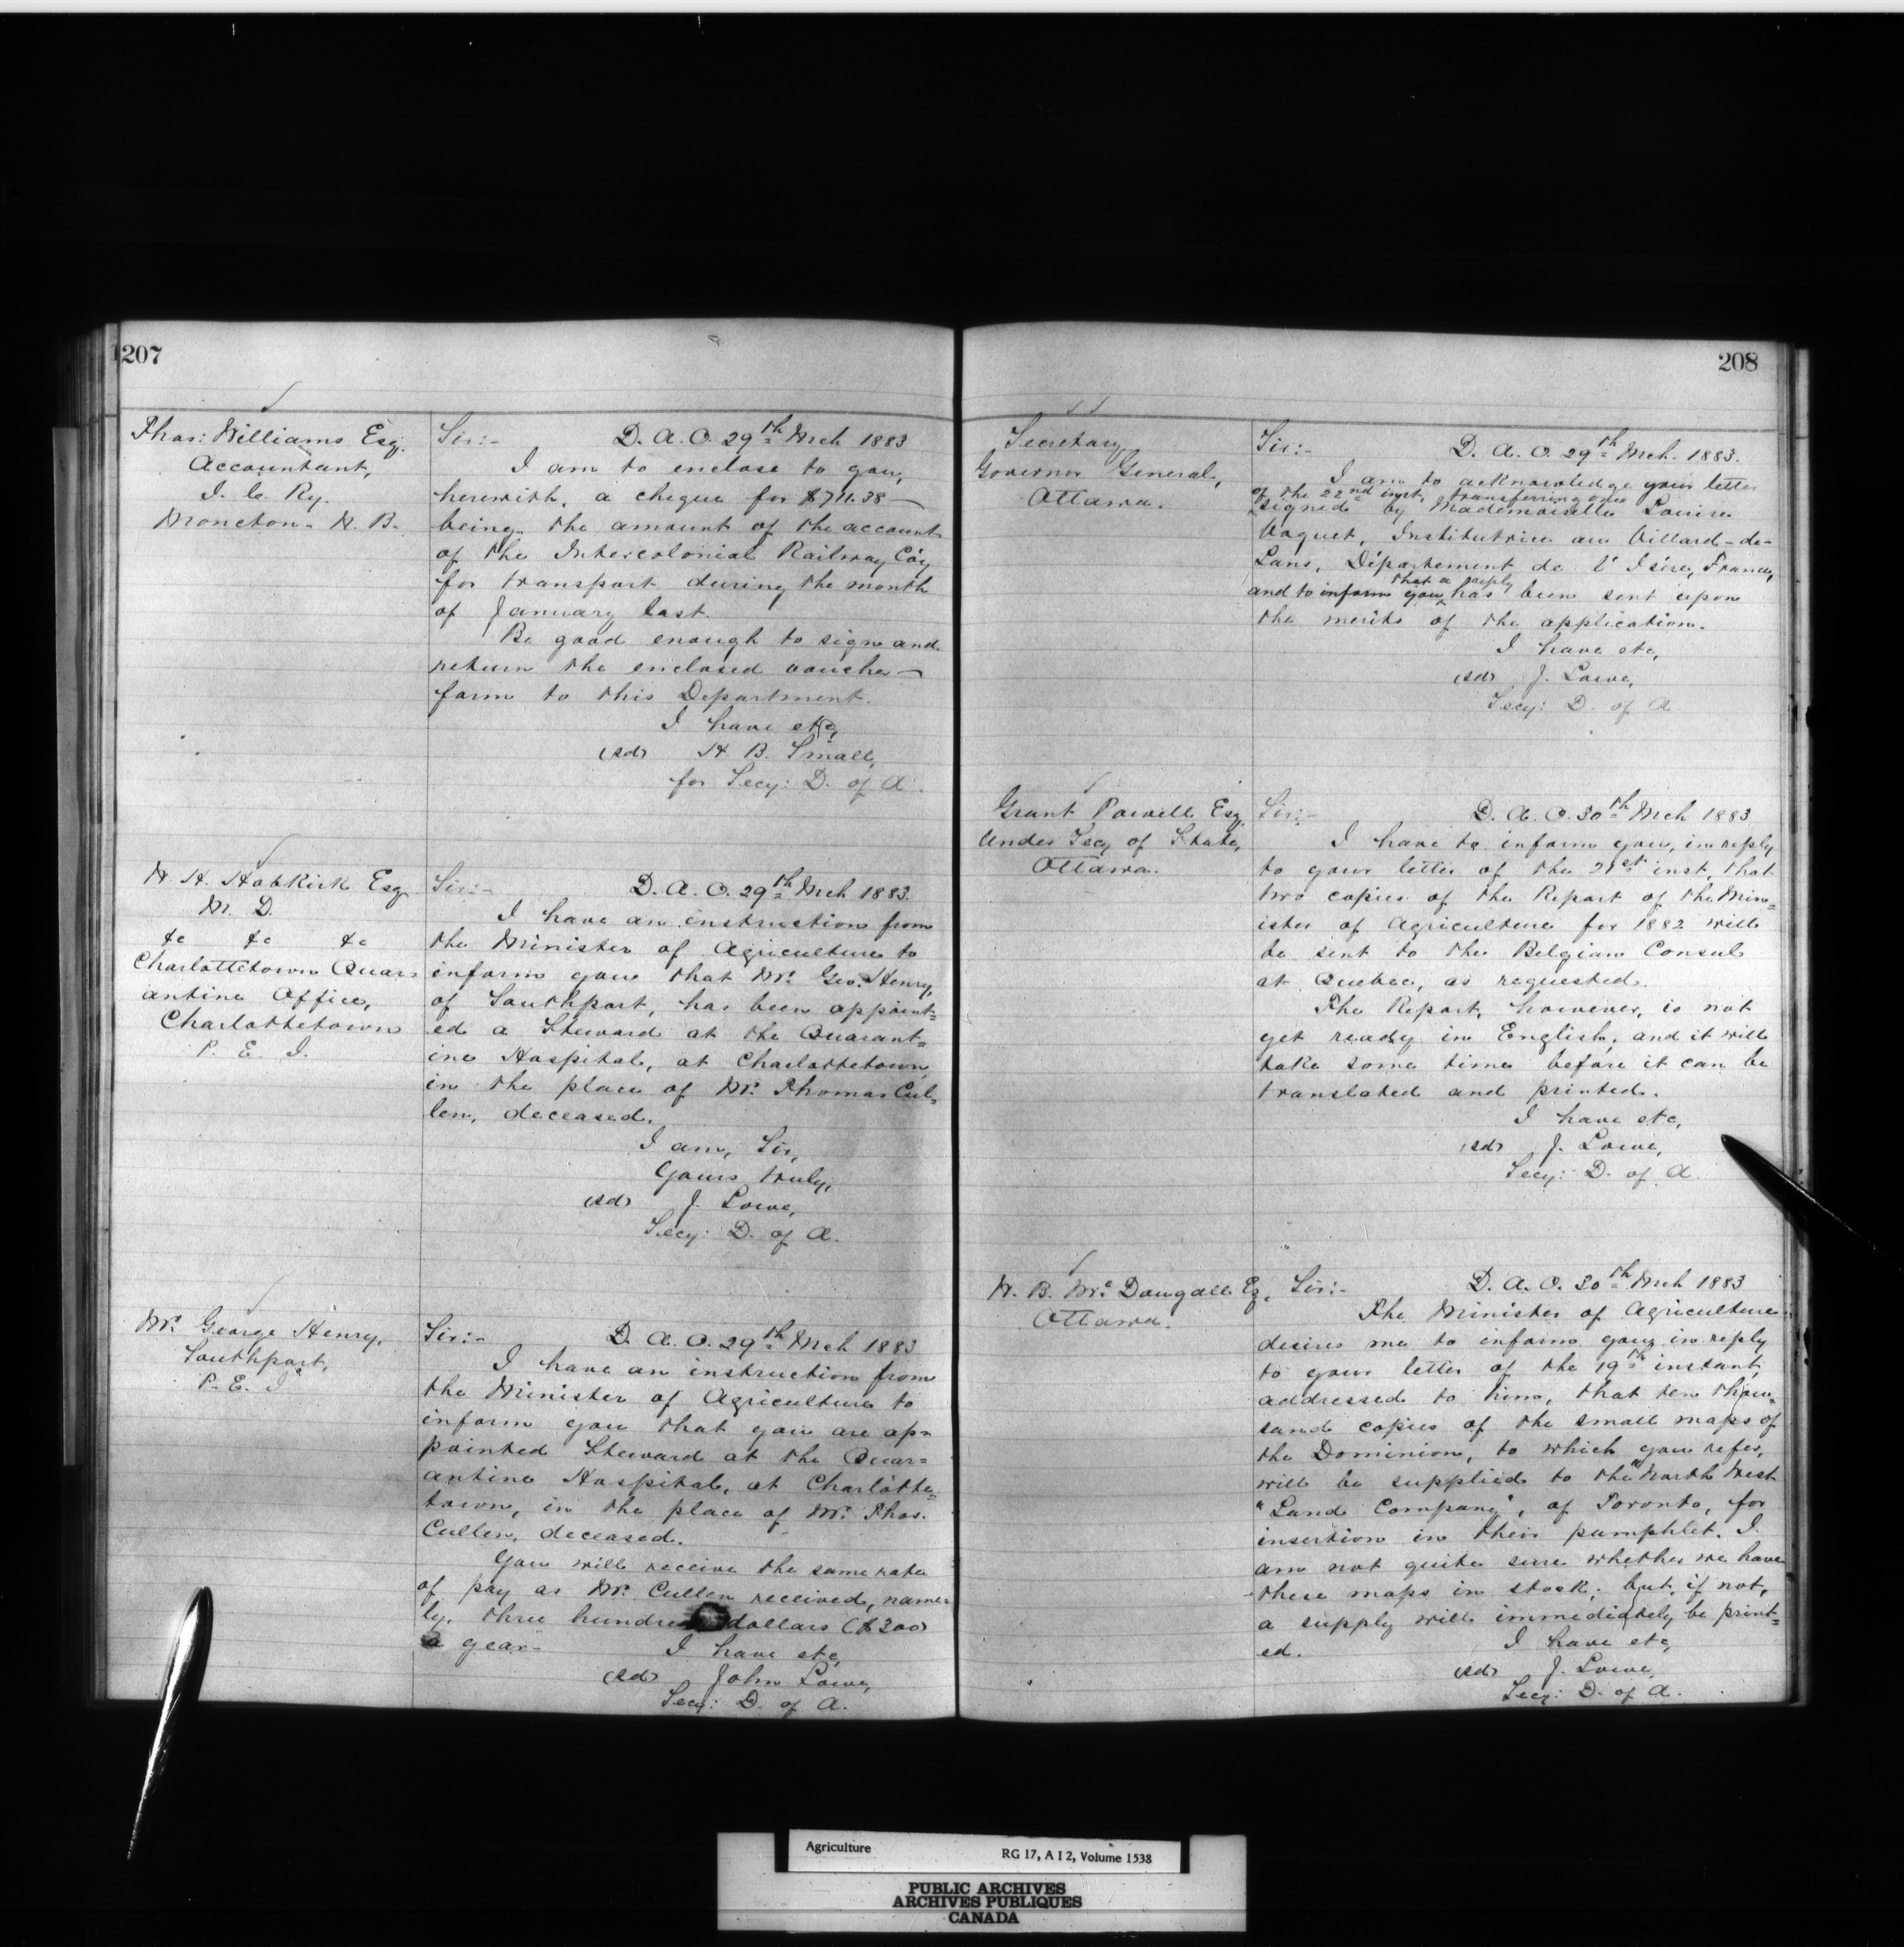 207
Thos: Williams Esq.
Accountant,
I. C. Ry.
Moncton. N. B.
Sir:- D. A. O. 29th Mch 1883
I am to enclose to you,
herewith, a cheque for $711.38
being the amount of the account
of the Intercolonial Railway Coy
for transport during the month
of January last.
Be good enough to sign and
return the enclosed voucher
form to this Department.
I have etc,
(sd) H. B. Small,
for Secy: D. of A.
H. H. Hobkirk Esq
M. D.
&c &c &c
Charlottetown Quar=
antine Office,
Charlottetown
P. E. I.
Sir:- D. A. O. 29th Mch 1883.
I have an instruction from
the Minister of Agriculture to
inform you that Mr. Geo. Henry,
of Southport, has been appoint=
ed a Steward at the Quarant=
ine Hospital, at Charlottetown,
in the place of Mr. Thomas Cul=
len, deceased.
I am, Sir,
Yours truly,
(sd) J. Lowe,
Secy: D. of A.
Mr. George Henry,
Southport,
P. E. I
Sir:- D. A. O. 29th Mch 1883
I have an instruction from
the Minister of Agriculture to
inform you that you are ap=
pointed Steward at the Quar=
antine Hospital, at Charlotte=
town, in the place of Mr. Thos.
Cullen, deceased.
You will receive the same rate
of pay as Mr. Cullen received, name=
ly, three hundred dollars ($300)
a year-
I have etc,
(sd) John Lowe,
Secy: D. of A.
208
Secretary
Governor General,
Ottawa.
Sir:- D. A. O. 29th Mch. 1883.
I am to acknowledge your letter
of the 22nd inst, transferring one
signed by Mademoiselle Louise
Institutrice au Villard-de-
Lans, Département de l'Isère, France,
and to inform you that a reply has been sent upon
the merits of the application.
I have etc,
(sd) J. Lowe,
Secy: D. of A
Grant Powell Esq.
Under Secy of State,
Ottawa.
Sir:- D. A. O. 30th Mch 1883
I have to inform you, in reply
to your letter of the 21st inst, that
two copies of the Report of the Min=
ister of Agriculture for 1882 will
be sent to the Belgian Consul
at Quebec, as requested.
The Report, however, is not
yet ready in English, and it will
take some time before it can be
translated and printed.
I have etc,
(sd) J. Lowe,
Secy: D. of A.
H. B. McDougall Eq.
Ottawa.
Sir:- D. A. O. 30th Mch 1883
The Minister of Agriculture
desires me to inform you, in reply
to your letter of the 19th instant,
addressed to him, that ten thou=
sand copies of the small maps of
the Dominion, to which you refer,
will be supplied to the "North West
"Land Company", of Toronto, for
insertion in their pamphlet. I
am not quite sure whether we have
these maps in stock; but, if not,
a supply will immediately be print=
ed.
I have etc,
(sd) J. Lowe,
Secy: D. of A.
Agriculture RG 17, A I 2, Volume 1538
PUBLIC ARCHIVES
ARCHIVES PUBLIQUES
CANADA